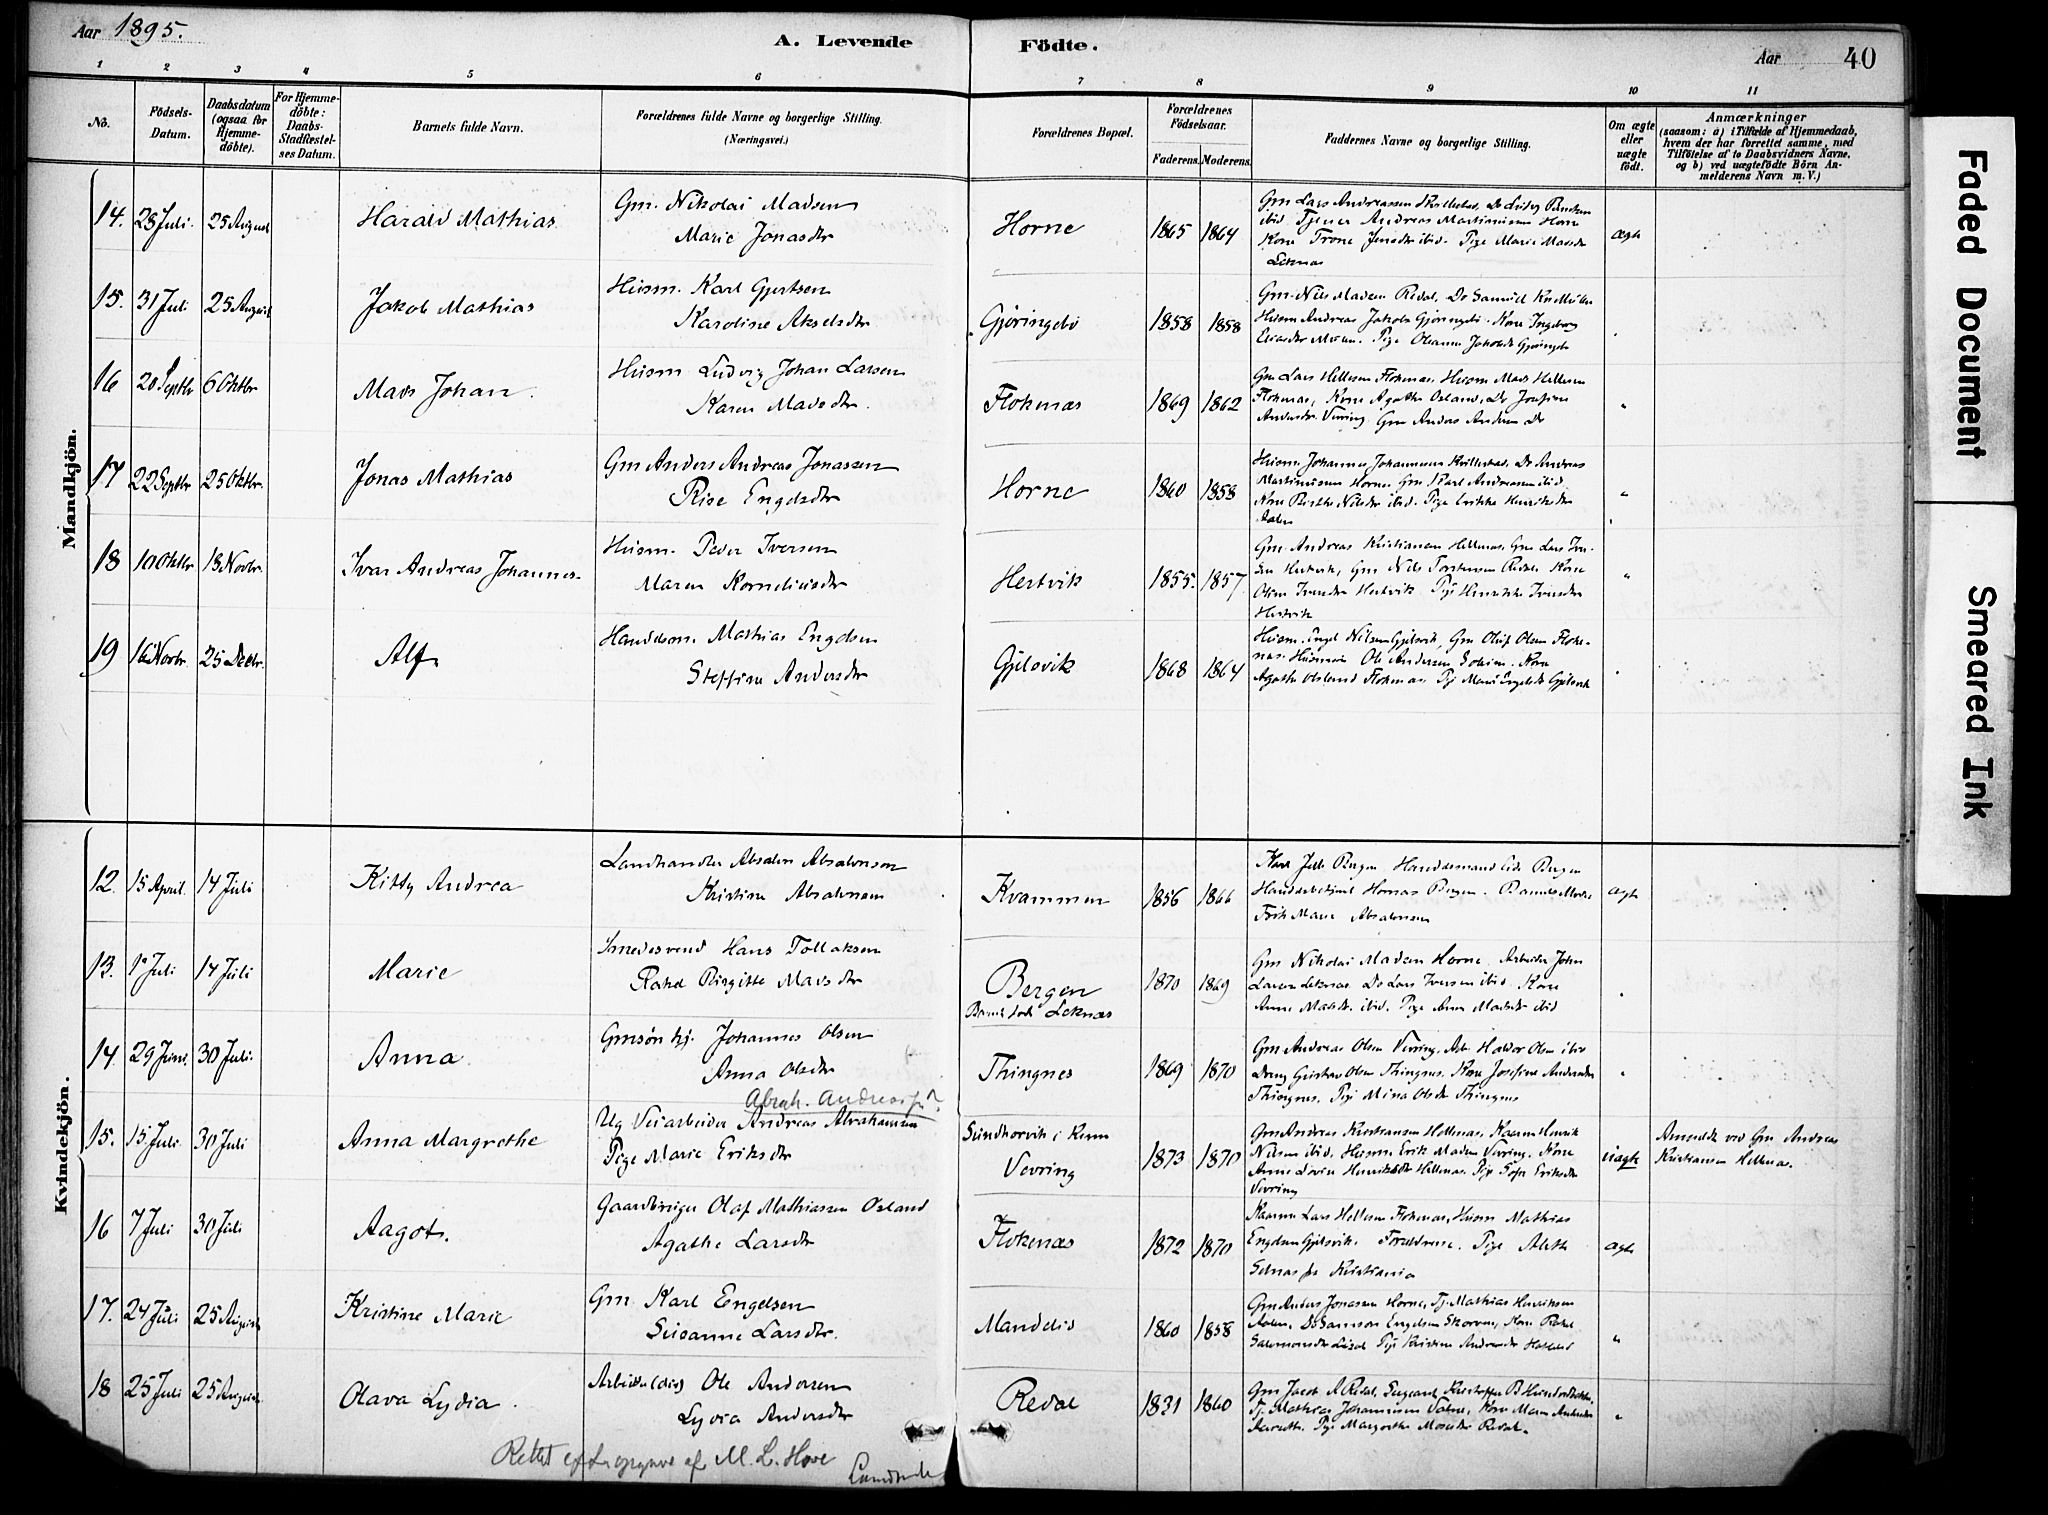 Aar 1895.
A. Levende Födte.
Aar
40
1 2 3 4 5 6 7 8 9 10 11
No.
Födsels-Datum.
Daabsdatum (ogsaa for Hjemme-döbte).
For Hjemme-döbte: Daabs-Stadfæstel-ses Datum.
Barnets fulde Navn.
Forældrenes fulde Navne og borgerlige Stilling. (Næringsvei.)
Forældrenes Bopæl.
Forældrenes Födselsaar.
Faderens. Moderens.
Faddernes Navne og borgerlige Stilling.
Om ægte eller uægte födt.
Anmærkninger
(saasom: a) i Tilfælde af Hjemmedaab,
hvem der har forrettet samme, med
Tilföielse af to Daabsvidners Navne,
og b) ved uægtefödte Börn An-
melderens Navn m. V.)
Mandkjön.
14. 28 Juli. 25 August Harald Mathias
Gm. Nikolai Madsen
Marie Jonasdtr
Horne 1865 1864
Gm Lars Andreassen
ibid Tjener Andreas Martinusen Horne
Kone Trone Jensdtr ibid. Pige Marie Madsdtr
Leknæs
ægte
15. 31 Juli 25 August Jakob Mathias
Husm. Karl Gjertsen
Karoline Akselsdtr
Gjöringebö 1858 1858
Gm. Nils Madsen Redal, Do Samuel
Husm Andreas Jakobs Gjöringebö. Kone Ingeborg
Eliasdtr Pige Oleanna Jakobsdtr Gjöringeb
16 20 Septbr 6 Oktbr Mads Johan.
Husm. Ludvig Johan Larsen
Karen Madsdtr.
Flokenæs 1869 1862
Gm Lars Hellesen Flokenæs, Husm Mads Hellesen
Flokenæs, Kone Agathe Osland, Do Josefine
Andersdtr Vevring Gm Anders Andersen Do
"
17 22 Septbr 25 Oktbr. Jonas Mathias
Gm Anders Andreas Jonassen
Rise Engelsdtr
Horne 1860 1858
Husm. Johannes Johannesen Kvillestad, Do Andreas
Martinusen Horne Gm Karl Andreasen ibid
Kone Berthe Nilsdtr ibid. Pige Erikke Henriksdtr
Aalen
"
18 10 Oktbr 18 Novbr. Ivar Andreas Johannes.
Husm. Peder Iversen
Maren Korneliusdtr
Hestvik 1855. 1857
Gm. Andreas Kristiansen Hellenæs, Gm Lars Iver-
sen Hestvik, Gm Nils Torstensen Redal. Kone
Oline Iversdtr Hestvik Pige Henrikke Iversdtr
Hestvik
"
19 16 Novbr. 25 Decbr. Alf.
Handelsm. Mathias Engelsen
Steffine Andersdtr
Gjelsvik 1868 1864
Husm. Engel Nilsen Gjelsvik, Gm Oluf Olsen Floke-
næs. Husmand Ole Andersen Solheim. Kone
Agathe Osland Flokenæs. Pig Marie Engelsdtr Gjelsvik
Kvindekjön.
12. 15 April. 14 Juli Kitty Andrea
Landhandler Absalon Absalonsen
Kristine Absalonsen
Kvammen 1856 1866
Bergen Handelsmand Eide Bergen
Hornæs Bergen. Barnets Moder
Frk Marie Absalonsen
ægte
13. 1 Juli 14 Juli Marie
Smedesvend Hans Tollaksen
Rakel Birgitte Madsdtr
Bergen
Barnet födt Leknæs
1870 1869
Gm Nikolai Madsen Horne, Arbeider John
Larsen Leknæs. Do Lars Iversen ibid. Kone
Anne Madsdtr. ibid. Pige Anna Madsdtr ibid
14. 29 Juni. 30 Juli. Anna.
Gmsön hj. Johannes Olsen
Anna Olsdtr
Thingnes 1869 1870
Gm Andreas Olsen Vevring. Arb. Haldor Olsen ibid
Dreng Gustav Olsen Thingnes. Kone Josefine Andersdtr
Thingnes. Pige Mina Olsdtr Thingnes
"
15. 15 Juli. 30 Juli Anna Margrethe
Abrah. Andreas
Ug Veiarbeider Andreas Abrahamsen
Pige Marie Eriksdtr
Sundhorvik i
Vevring
1873 1870
Gm Andreas Kristiansen Hellenæs, Kaarm Henrik
Nilsen ibid. Husm Erik Madsen Vevring. Kone
Anne Lovise Henriksdtr Hellenæs. Pige Sofie Eriksdtr
Vevring
uægte
Anmeldt ved Gm Andreas
Kristiansen Hellenæs.
16 7 Juli 30 Juli Aagot.
Gaardbruger Olaf Mathiassen Osland
Agathe Larsdtr
Flokenæs 1872 1870
Kaarm Lars Hellesen Flokenæs, Husm Mathias
Engelsen Gjelsvik. Forældrene. Pige Aleth
fra Kristiania
ægte
17. 24 Juli 25 August Kristine Marie
Gm. Karl Engelsen
Susanne Larsdtr.
Mandelid 1860 1858
Gm Anders Jonassen Horne, Tj. Mathias Henriksen
Aalen, Do Samson Engelsen Skorven, Kone Rakel
Salomonsdtr Pige Kristine Andreasdtr
"
18 25 Juli 25 August Olava Lydia
Arbeider (död) Ole Andersen
Lydia Andersdtr
Redal 1831 1860
Gm Jacob A Redal, Sergeant Kristoffer B
Tj. Mathias Johannesen Kone Maren Andersdtr
Pige Margrethe Redal.
"
Rettet efter opgave af M. L. Hove
Faded Document
Smeared Ink